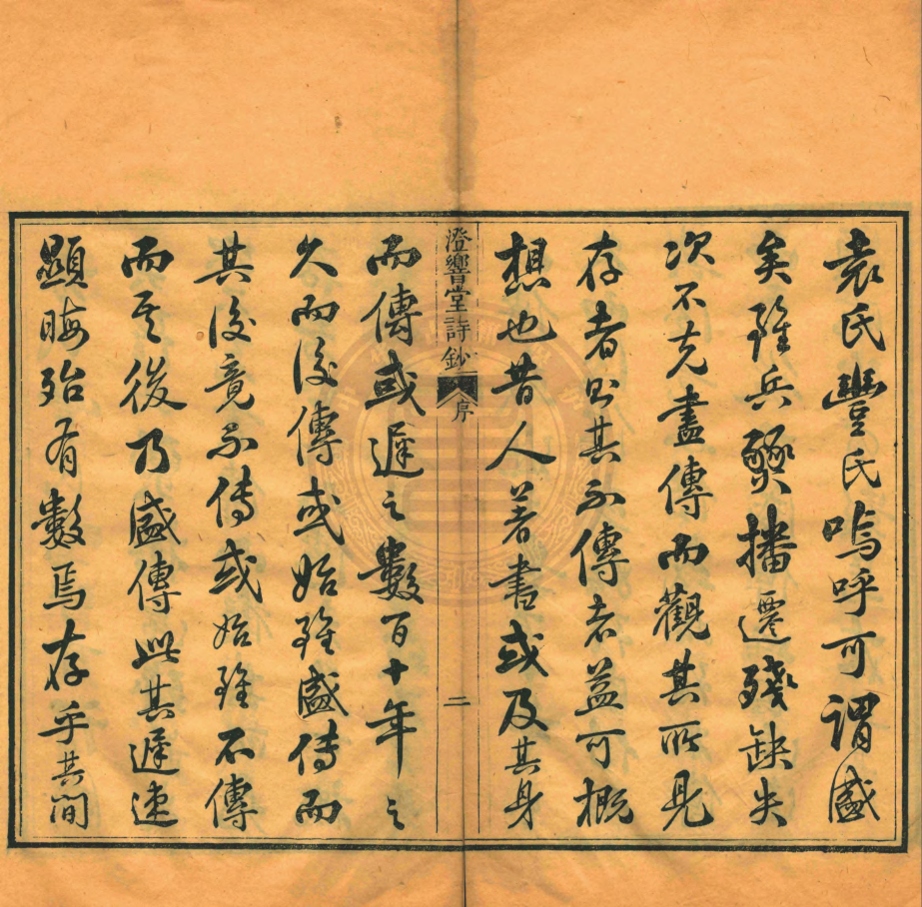 袁氏豐氏嗚呼可謂盛
矣雖兵燹播遷殘缺失
次不克盡傳而觀其所見
存者則其不傳者益可概
想也昔人著書或及其身
澄響堂詩鈔 序 二
而傳或遲之數百十年之
久而後傳或始雖盛傳而
其後竟不傳或始雖不傳
而其後乃盛傳此其遲速
顯晦殆有數焉存乎其間